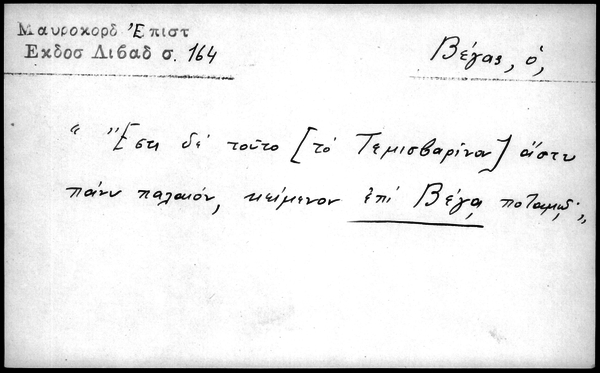 Μαυροκορδ Ἐπιστ
Εκδοσ Λιβαδ σ. 164
Βέγας, ὁ,
“ Ἔστι δέ τοῦτο [τό Τεμισβαρίνα] ἄστυ
πάνυ παλαιόν, κείμενον ἐπί Βέγᾳ ποταμῷ·„